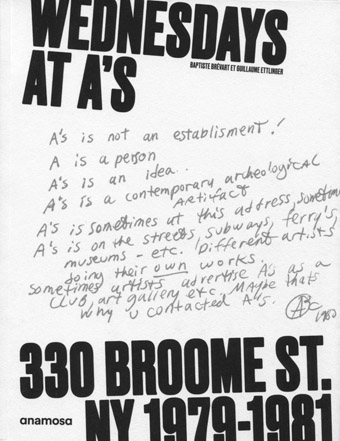 WEDNESDAYS
AT A'S
BAPTISTE BRÉVART ET GUILLAUME ETTLINGER
A's is not an establisment!
A is a person
A's is an idea.
A's is a contemporary archeological
Artifact
A's is sometimes at this address, sometimes
A's is on the streets, subways, ferry's,
museums - etc. Different artists
doing their own works.
sometimes artists advertise A's as a
Club, art gallery etc. Maybe thats
why u contacted A's.
1980
330 BROOME ST.
anamosa
NY 1979-1981